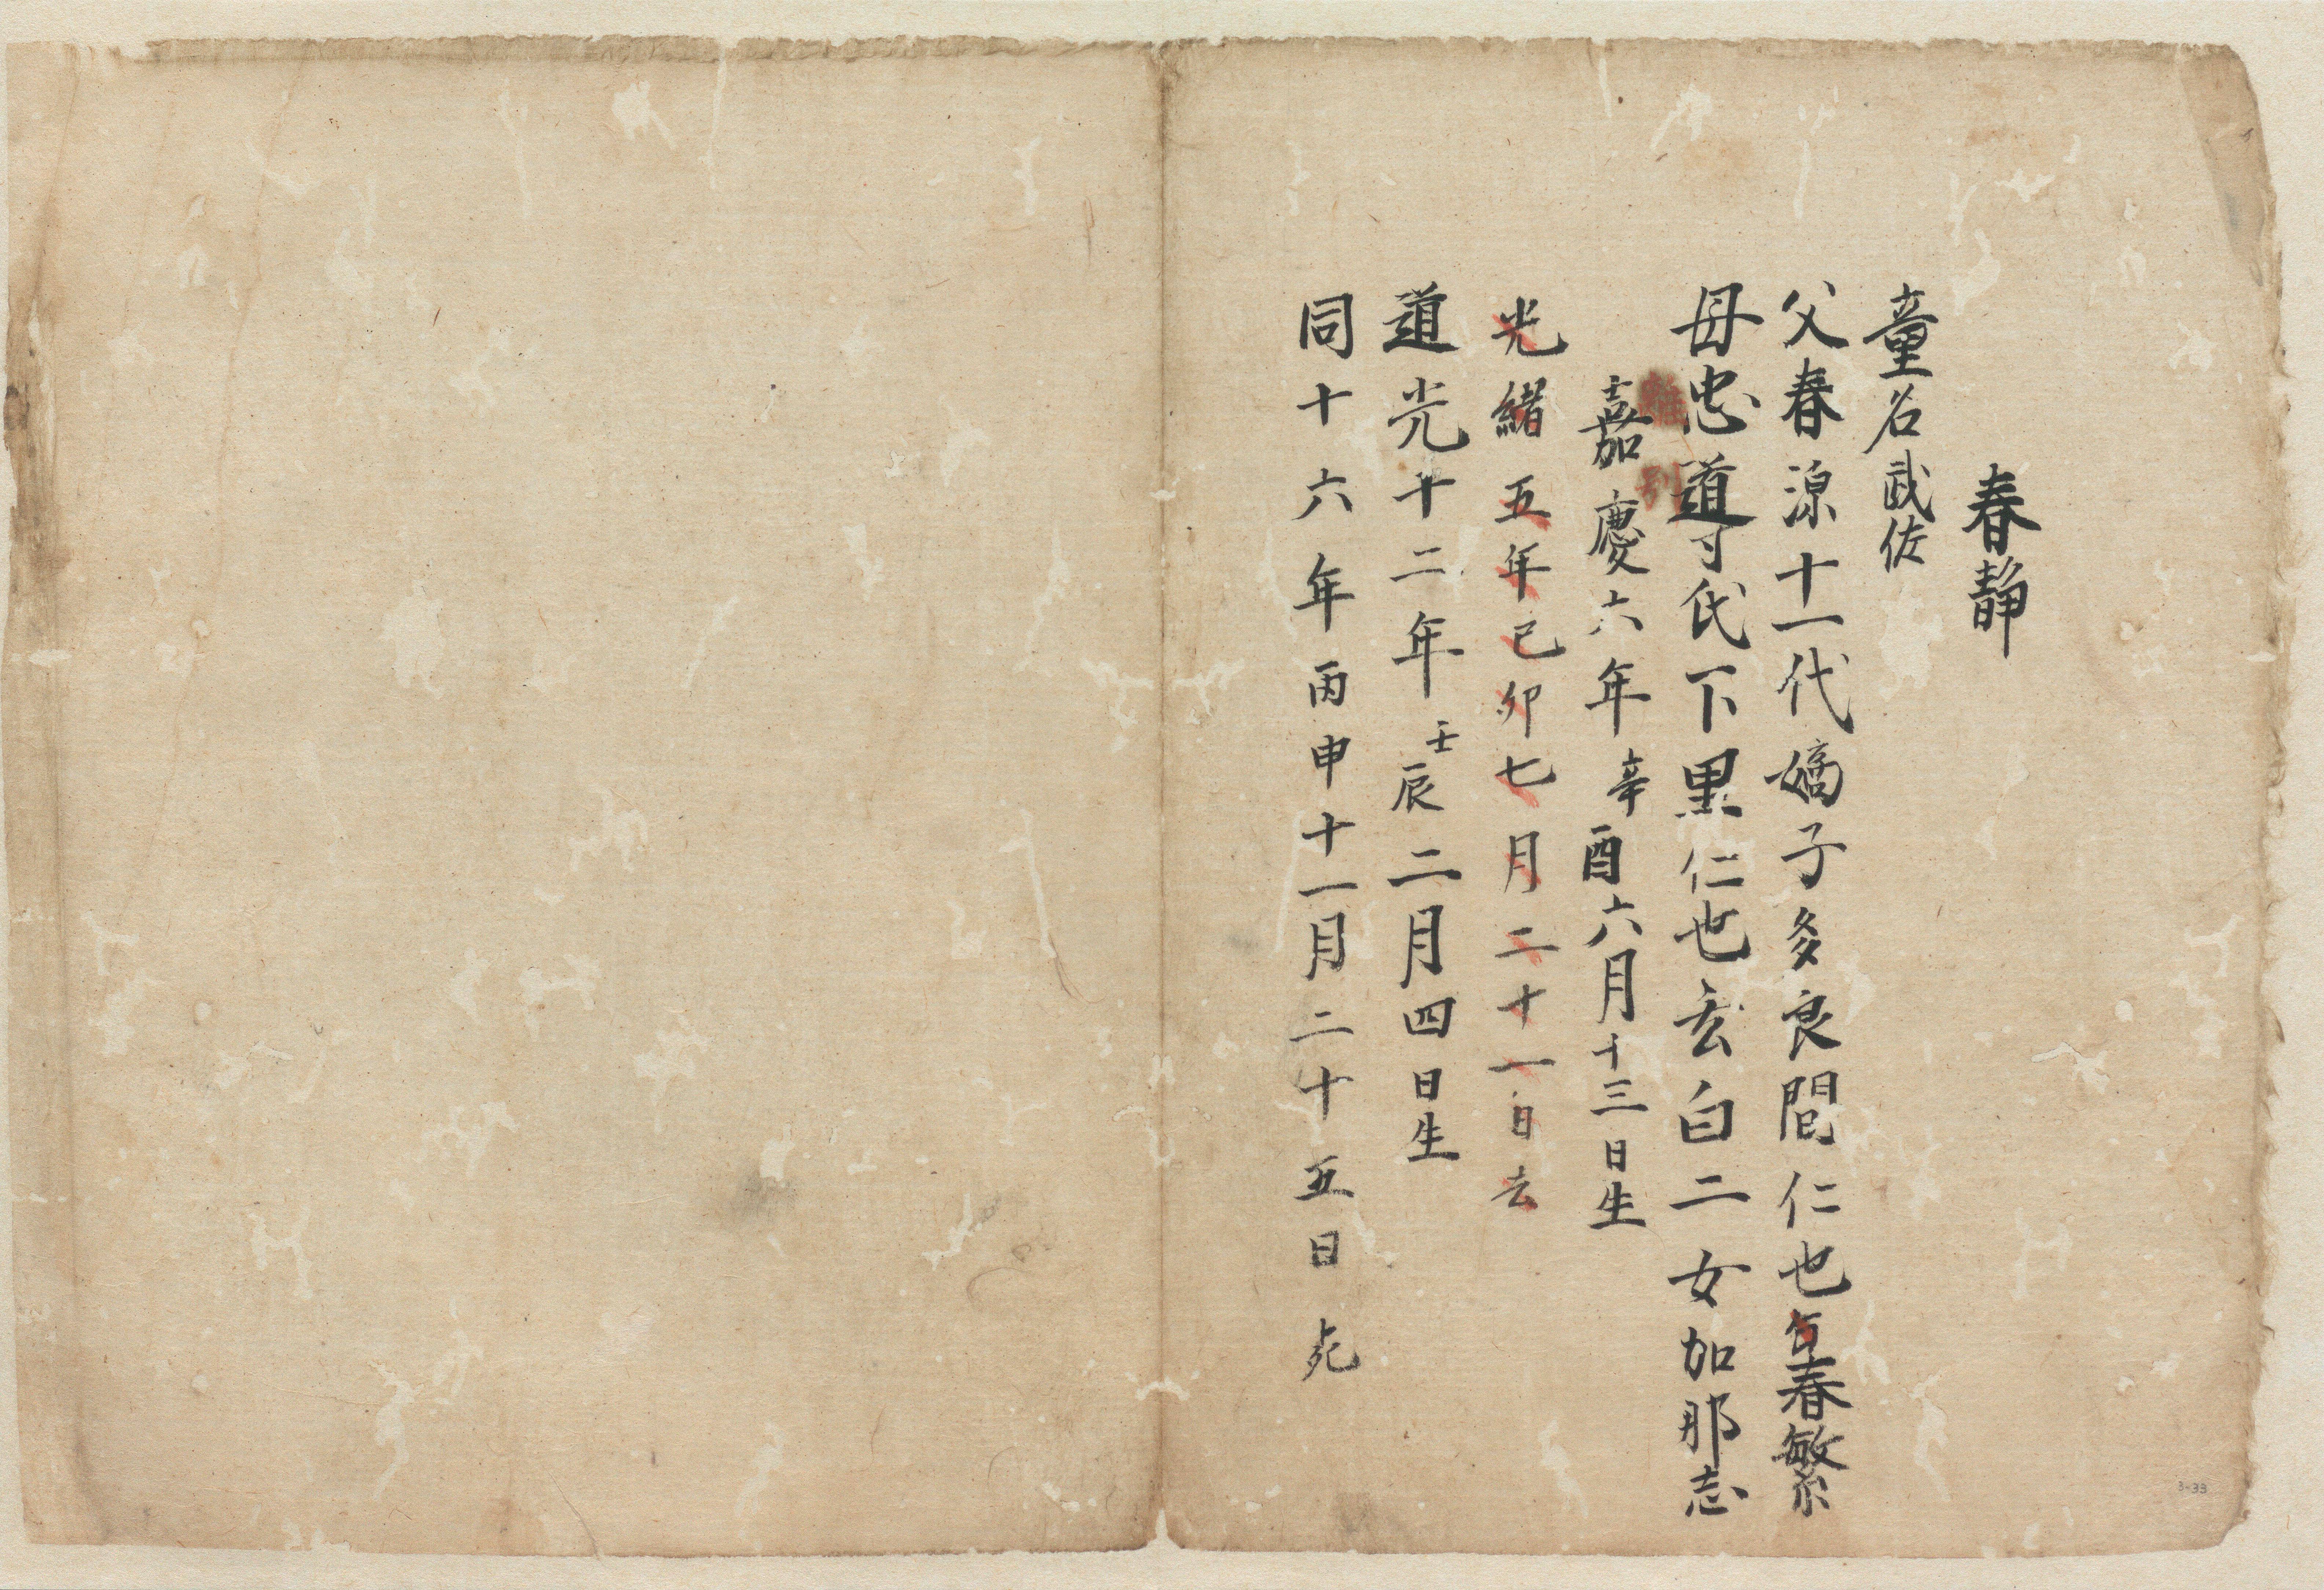 春静
童名武佐
父春源十一代嫡子多良間仁也春繁
母忠道寸氏下里仁也玄白二女加那志
離別
嘉慶六年辛酉六月十三日生
光緒五年己卯七月二十一日去
道光十二年壬辰二月四日生
同十六年丙申十一月二十五日死
3-33